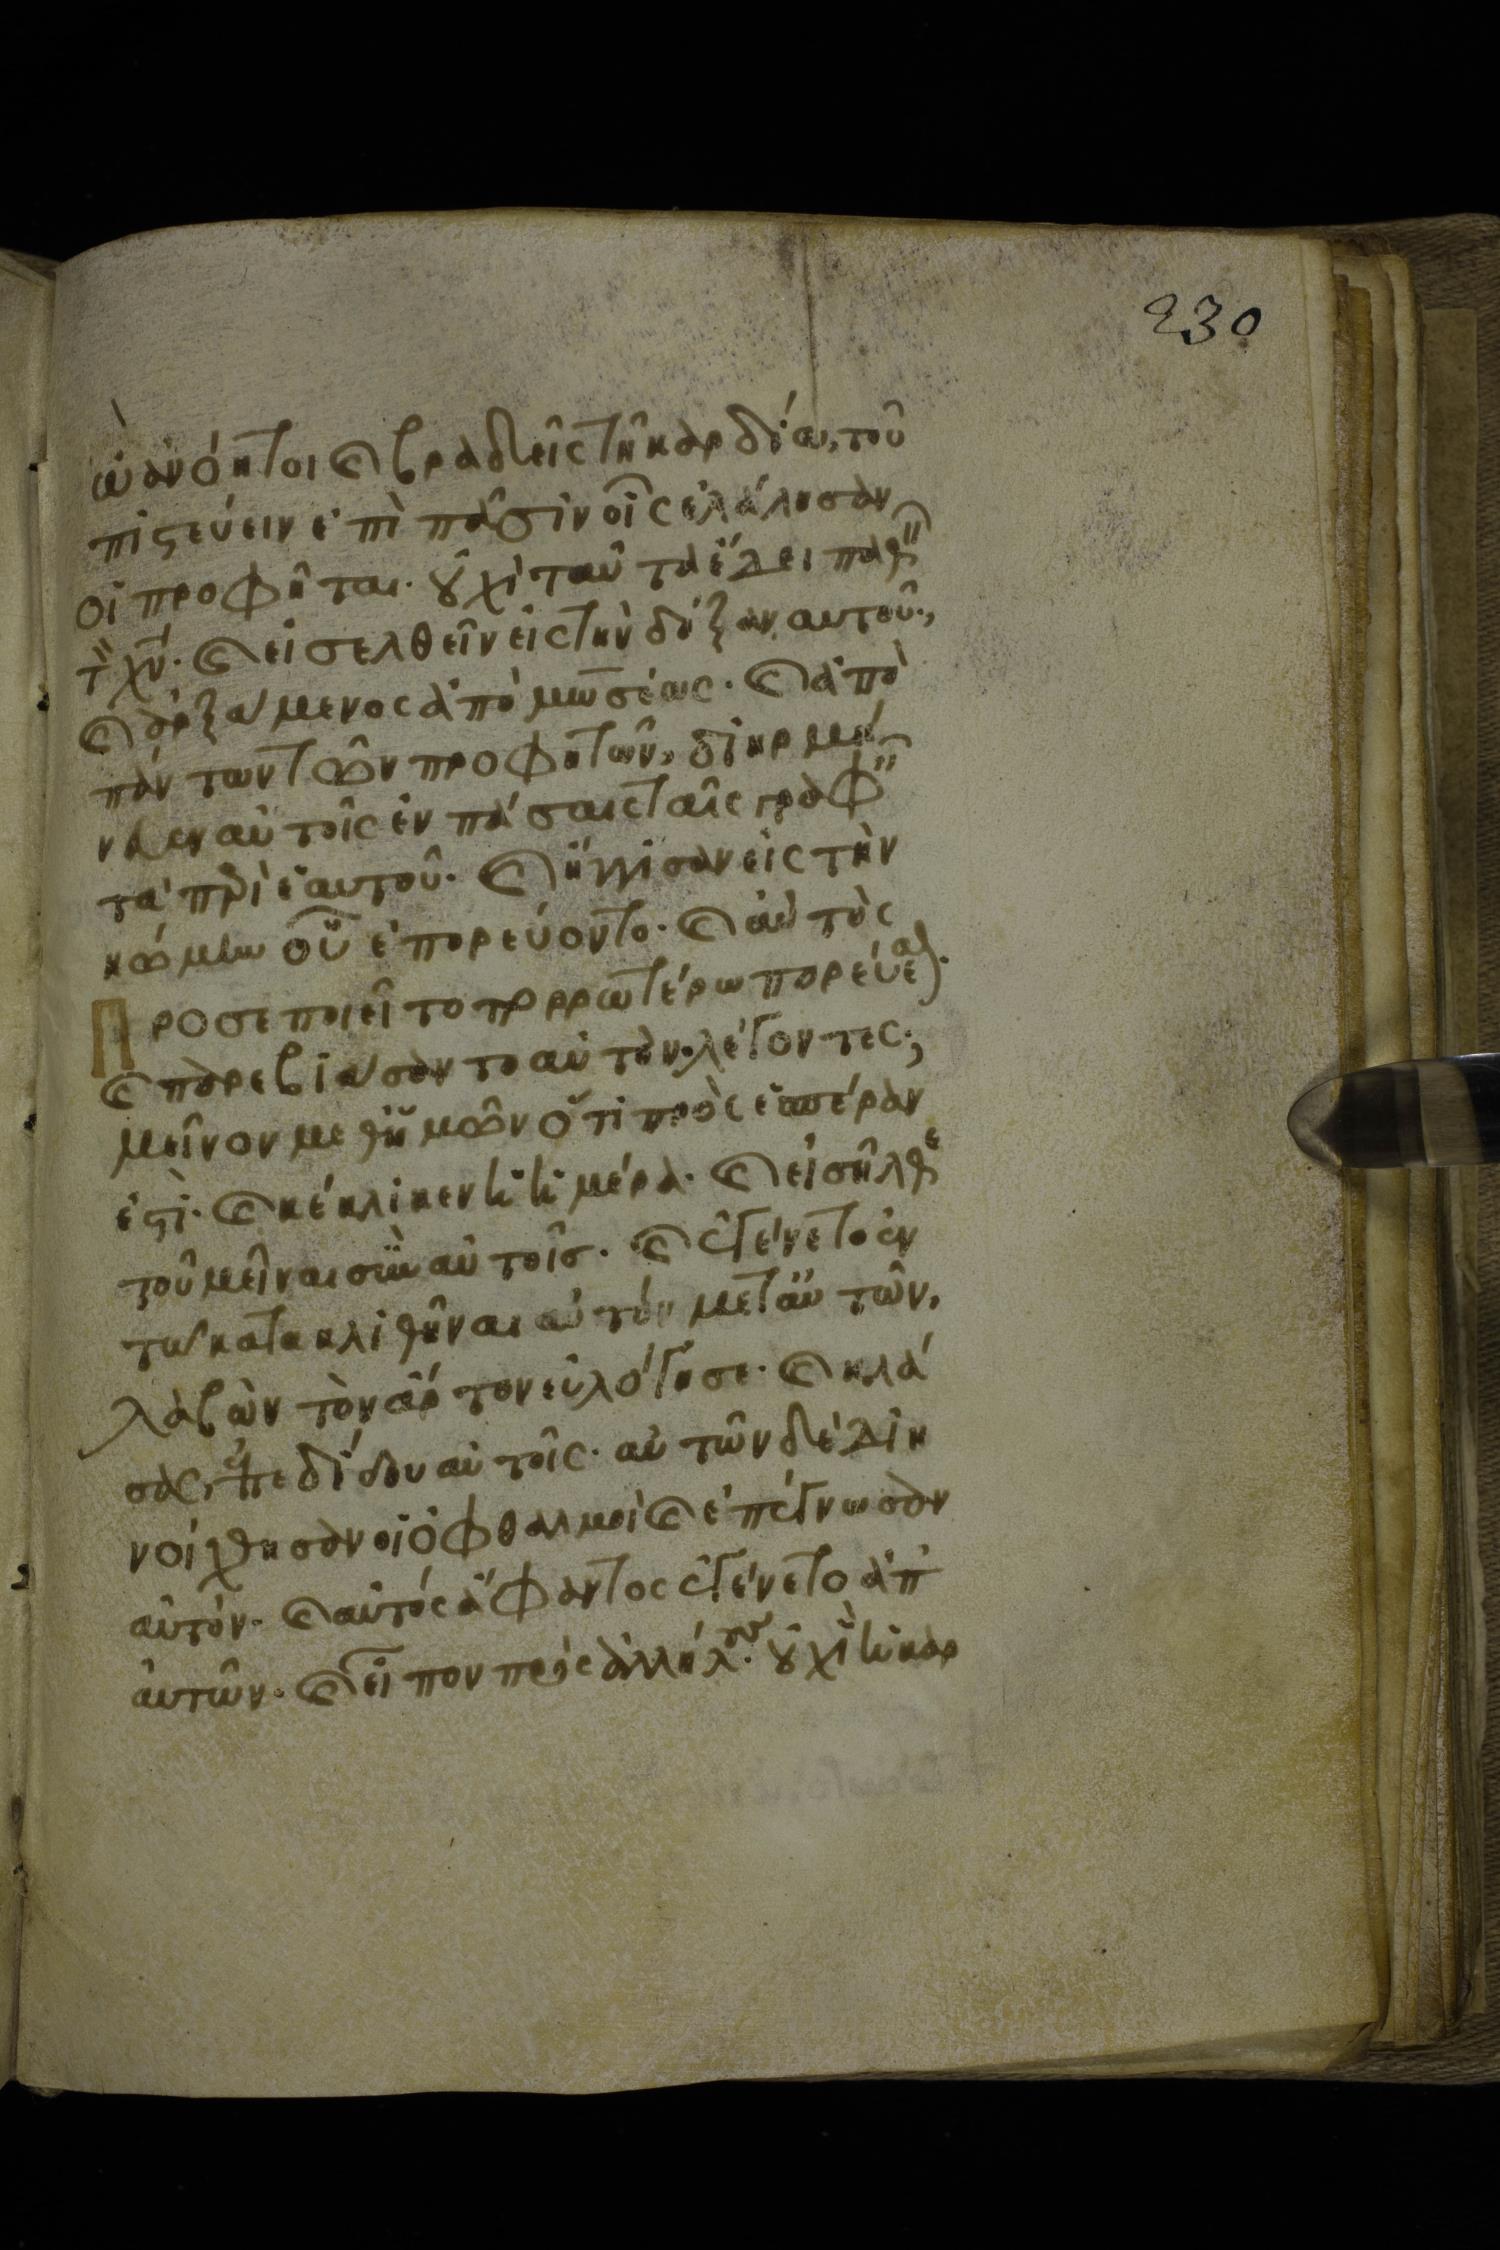 230
ὦ ἀνόητοι ϗ βραδεῖς τῇ καρδία, τοῦ
πιστεύειν ἐπὶ πᾶσιν οἷς ἐλάλησαν
οἱ προφῆται. οὐχὶ ταῦτα ἔδει παθεῖν
τὸν χν. ϗ εἰσελθεῖν εἰς τὴν δόξαν αυτοῦ.
ϗ ἀρξάμενος ἀπὸ μωσέως. ϗ ἀπὸ
πάντων τῶν προφητῶν, διηρμή
νευεν αὐτοῖς ἐν πάσαις ταῖς γραφαῖς
τὰ περὶ ἑαυτοῦ. ϗ ἤγγισαν εἰς τὴν
κώμην οὗ ἐπορεύοντο. ϗ αὐτὸς
Προσεποιεῖτο πορρωτέρω πορεύεσθαι.
ϗ παρεβιάσαντο αὐτὸν. λέγοντες·
μεῖνον μεθ ἡμῶν ὅτι πρὸς ἑσπέραν
ἐστὶ. ϗ κέκλικεν ἡ ἡμέρα. ϗ εἰσῆλθε
τοῦ μεῖναι σὺν αὐτοῖς. ϗ ἐγένετο ἐν
τῶ κατακλιθῆναι αὐτόν μετ αὐτῶν,
λαβὼν τὸν ἄρτον εὐλόγησε. ϗ κλά
σας, ἐπεδίδου αὐτοῖς. αὐτῶν δὲ διη
νοίχθησαν οἱ ὀφθαλμοὶ ϗ ἐπέγνωσαν
αὐτόν. ϗ αὐτός ἄφαντος ἐγένετο ἀπ
αὐτῶν. ϗ εἶπον πρός ἀλλήλους. οὐχὶ ἡ καρ